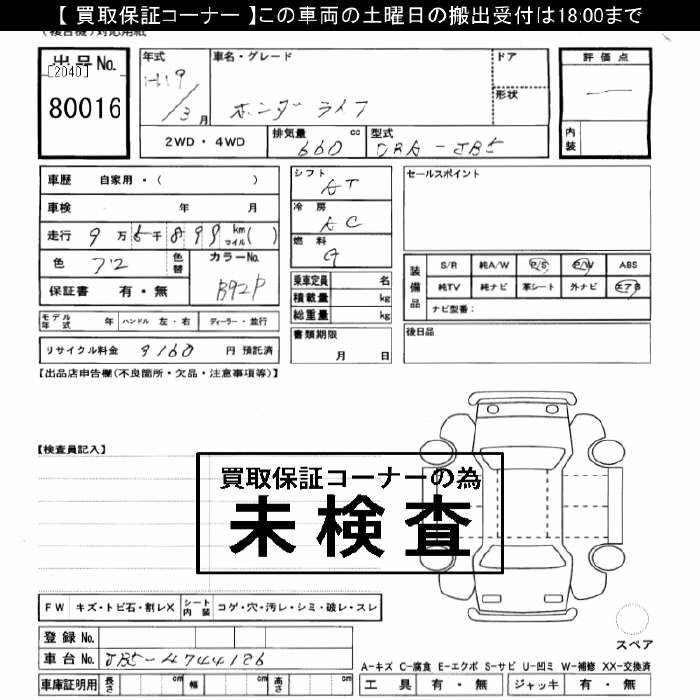 【 買取保証コーナー 】この車両の土曜日の搬出受付は18:00まで
(複合機)対応用紙
出品No. [2040] 80016
年式 H19/3月
車名・グレード ホンダ ライフ
ドア
形状
評価点 —
内装
2WD・4WD
排気量 660 cc
型式 DBA-JB5
車歴 自家用・( )
車検 年 月
走行 9万 千 899 km マイル( )
色 色替 カラーNo. B92P
保証書 有・無
シフト AT
冷房 AC
燃料 G
乗車定員 名
積載量 kg
総重量 kg
セールスポイント
装備品 S/R 純A/W P/S P/W ABS
純TV 純ナビ 革シート 外ナビ エアB
ナビ型番:
モデル年式 年 ハンドル 左・右 ディーラー・並行
リサイクル料金 9160 円 預託済
書類期限 月 日
後日品
【出品店申告欄(不良箇所・欠品・注意事項等)】
【検査員記入】
買取保証コーナーの為
未検査
FW キズ・トビ石・割レX シート内装 コゲ・穴・汚レ・シミ・破レ・スレ
登録No.
車台No. JB5-4744126
スペア
A-キズ C-腐食 E-エクボ S-サビ U-凹ミ W-補修 XX-交換済
車庫証明用 長さ cm 幅 cm 高さ cm
工具 有・無 ジャッキ 有・無